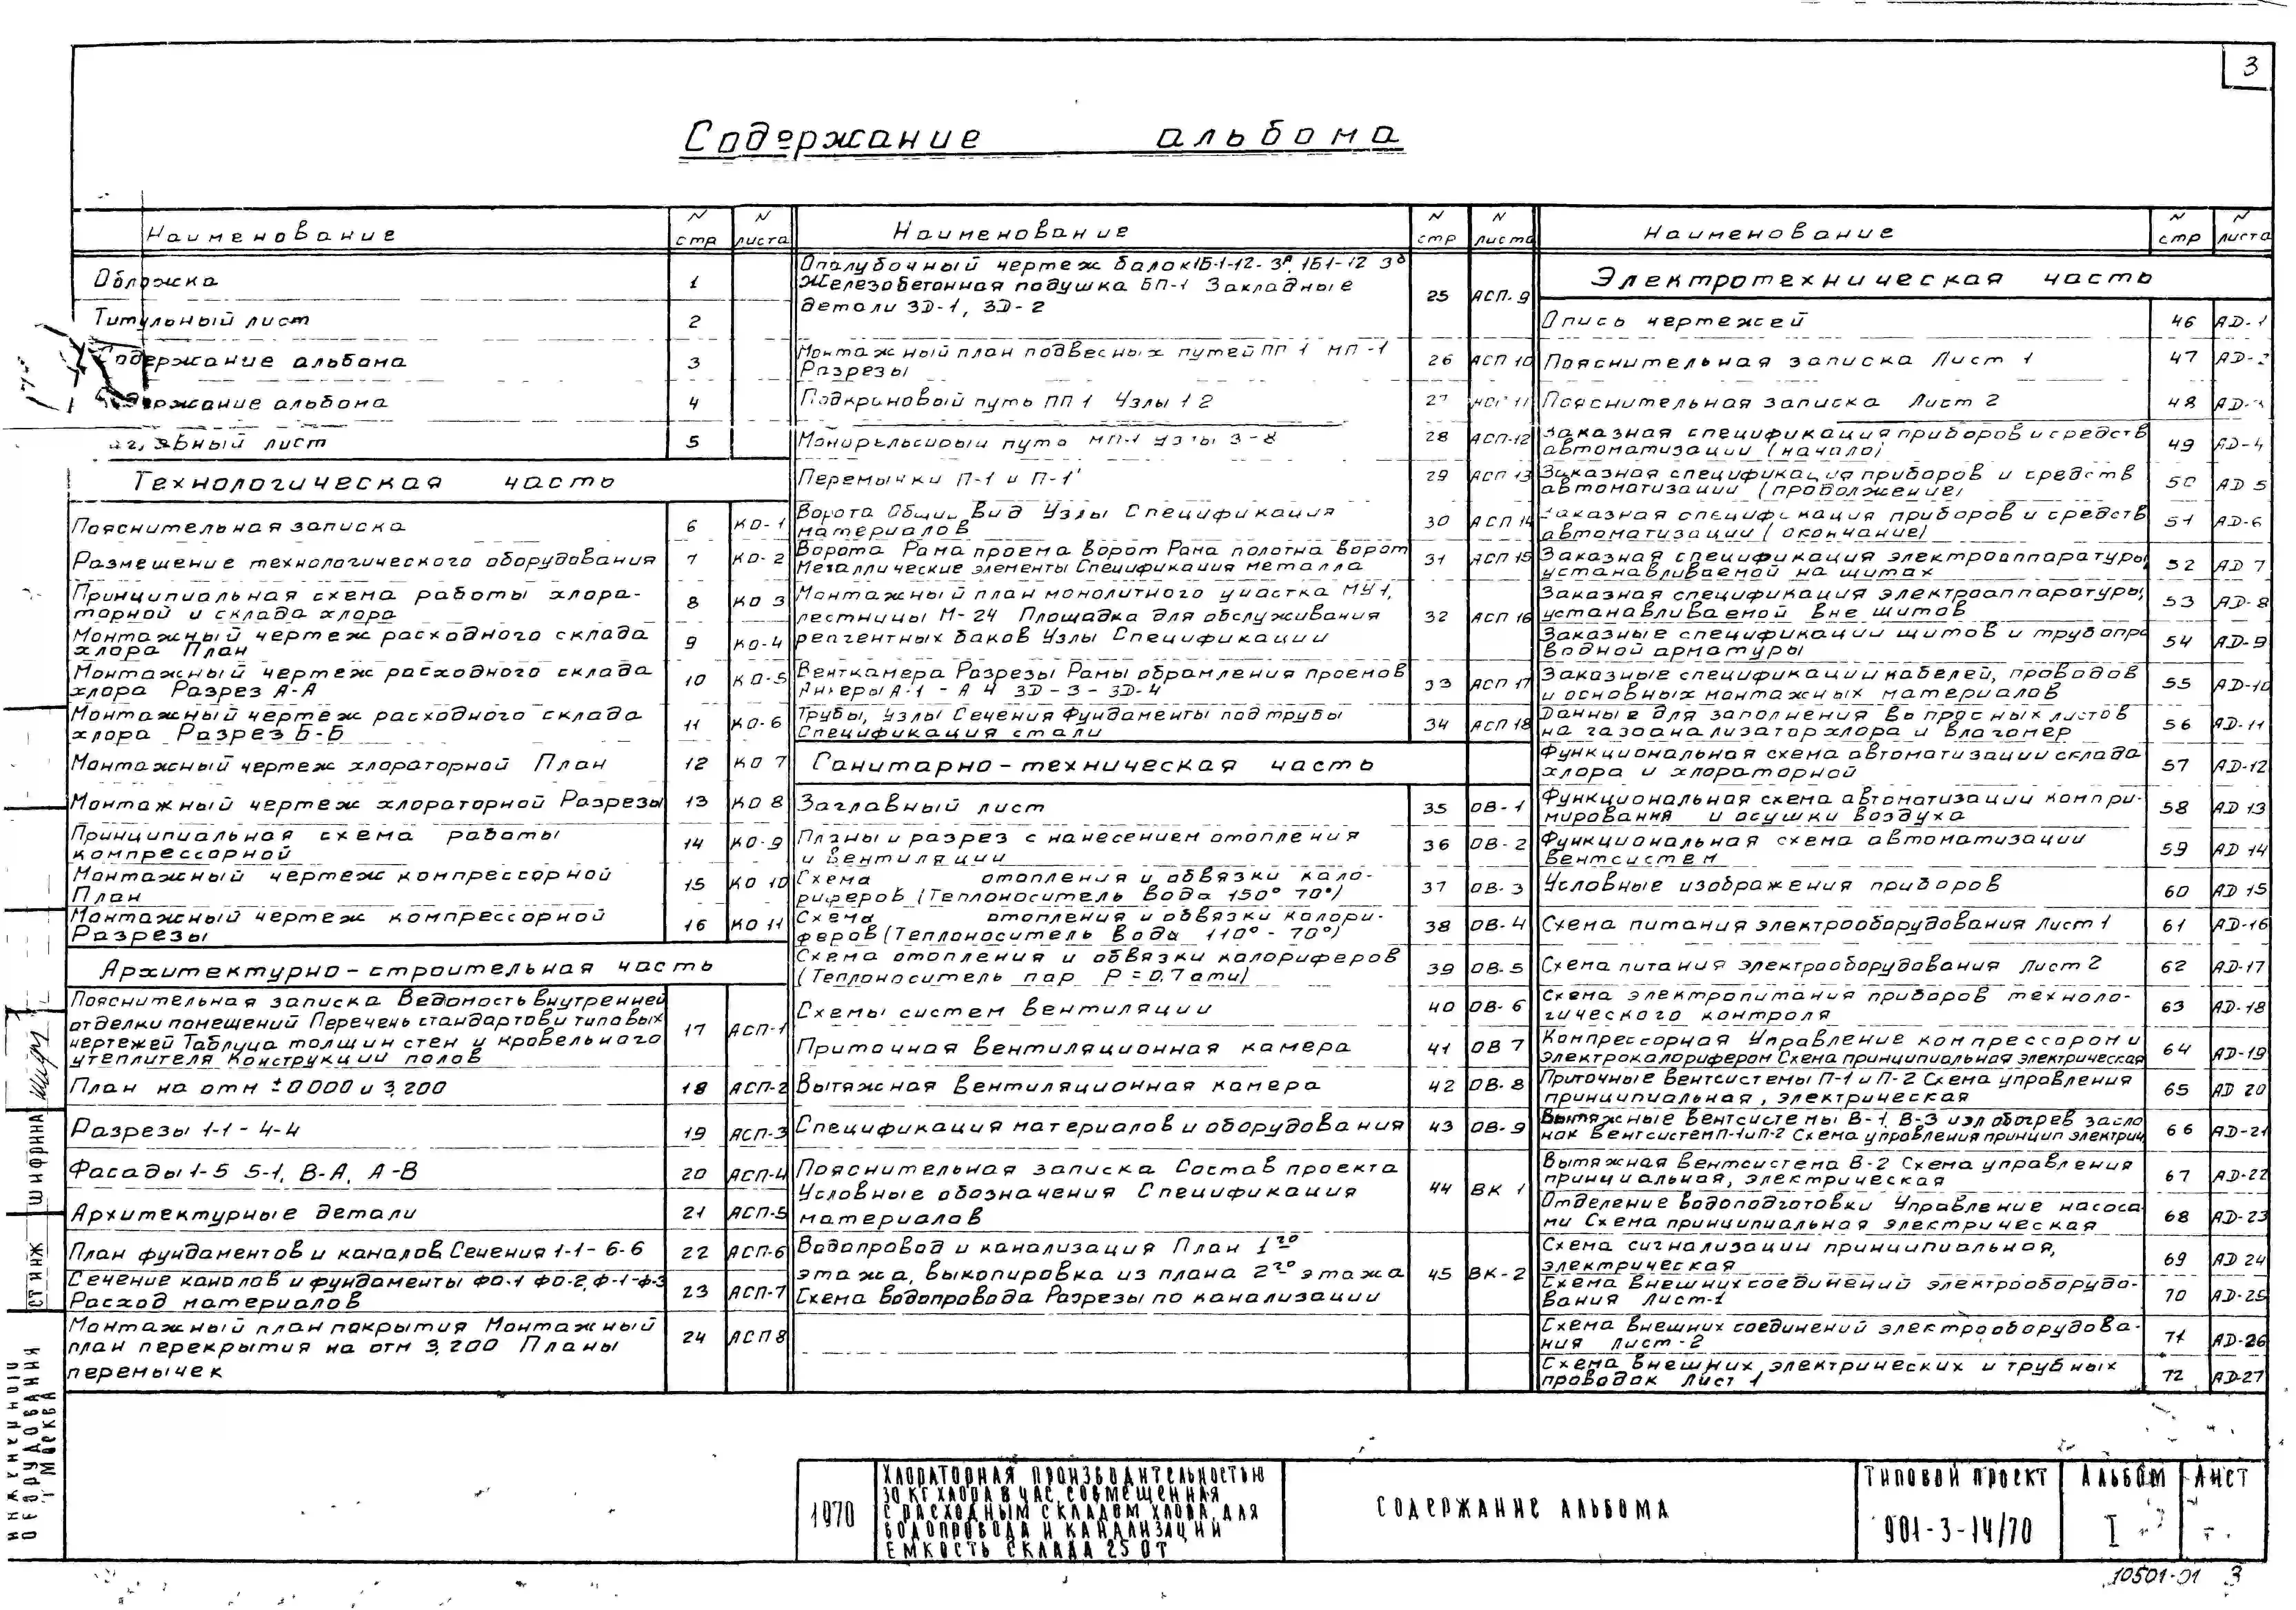 3
Содержание альбома
Наименование № стр № листа
Обложка 1
Титульный лист 2
Содержание альбома 3
Содержание альбома 4
лист 5
Технологическая часть
Пояснительная записка 6 КО-1
Размещение технологического оборудования 7 КО-2
Принципиальная схема работы хлора-
торной и склада хлора 8 КО 3
Монтажный чертеж расходного склада
хлора План 9 КО-4
Монтажный чертеж расходного склада
хлора Разрез А-А 10 КО-5
Монтажный чертеж расходного склада
хлора Разрез Б-Б 11 КО-6
Монтажный чертеж хлораторной План 12 КО 7
Монтажный чертеж хлораторной Разрезы 13 КО 8
Принципиальная схема работы
компрессорной 14 КО-9
Монтажный чертеж компрессорной
План 15 КО 10
Монтажный чертеж компрессорной
Разрезы 16 КО 11
Архитектурно-строительная часть
Пояснительная записка Ведомость внутренней
отделки помещений Перечень стандартов и типовых
чертежей Таблица толщин стен и кровельного
утеплителя Конструкции полов 17 АСП-1
План на отм ±0 000 и 3,200 18 АСП-2
Разрезы 1-1 - 4-4 19 АСП-3
Фасады 1-5 5-1, В-А, А-В 20 АСП-4
Архитектурные детали 21 АСП-5
План фундаментов и каналов Сечения 1-1 - 6-6 22 АСП-6
Сечение каналов и фундаменты ФО-1 ФО-2, Ф-1-Ф-3
Расход материалов 23 АСП-7
Монтажный план покрытия Монтажный
план перекрытия на отм 3,200 Планы
перемычек 24 АСП 8
Наименование № стр № листа
Опалубочный чертеж балок 1Б-1-12-3а, 1Б1-12 3б
Железобетонная подушка БП-1 Закладные
детали ЗД-1, ЗД-2 25 АСП-9
Монтажный план подвесных путей ПП 1 МП-1
Разрезы 26 АСП 10
Подкрановый путь ПП 1 Узлы 1 2 27 АСП 11
Монорельсовый путь МП-1 Узлы 3-8 28 АСП-12
Перемычки П-1 и П-1' 29 АСП 13
Ворота Общий вид Узлы Спецификация
материалов 30 АСП 14
Ворота Рама проема ворот Рама полотна ворот
Металлические элементы Спецификация металла 31 АСП 15
Монтажный план монолитного участка МУ 1,
лестницы М-24 Площадка для обслуживания
реагентных баков Узлы Спецификации 32 АСП 16
Венткамера Разрезы Рамы обрамления проемов
Анкеры А-1 - А 4 ЗД-3 - ЗД-4 33 АСП 17
Трубы, Узлы Сечения Фундаменты под трубы
Спецификация стали 34 АСП 18
Санитарно-техническая часть
Заглавный лист 35 ОВ-1
Планы и разрез с нанесением отопления
и вентиляции 36 ОВ-2
Схема отопления и обвязки кало-
риферов (Теплоноситель вода 150° 70°) 37 ОВ-3
Схема отопления и обвязки калори-
феров (Теплоноситель вода 110° - 70°) 38 ОВ-4
Схема отопления и обвязки калориферов
(Теплоноситель пар Р=0.7 ати) 39 ОВ-5
Схемы систем вентиляции 40 ОВ-6
Приточная вентиляционная камера 41 ОВ 7
Вытяжная вентиляционная камера 42 ОВ-8
Спецификация материалов и оборудования 43 ОВ-9
Пояснительная записка Состав проекта
Условные обозначения Спецификация
материалов 44 ВК 1
Водопровод и канализация План 1го
этажа, выкопировка из плана 2го этажа
Схема водопровода Разрезы по канализации 45 ВК-2
Наименование № стр № листа
Электротехническая часть
Опись чертежей 46 АД-1
Пояснительная записка Лист 1 47 АД-2
Пояснительная записка Лист 2 48 АД-3
Заказная спецификация приборов и средств
автоматизации (начало) 49 АД-4
Заказная спецификация приборов и средств
автоматизации (продолжение) 50 АД 5
Заказная спецификация приборов и средств
автоматизации (окончание) 51 АД-6
Заказная спецификация электроаппаратуры,
устанавливаемой на щитах 52 АД 7
Заказная спецификация электроаппаратуры,
устанавливаемой вне щитов 53 АД-8
Заказные спецификации щитов и трубопро
водной арматуры 54 АД-9
Заказные спецификации кабелей, проводов
и основных монтажных материалов 55 АД-10
Данные для заполнения вопросных листов
на газоанализатор хлора и влагомер 56 АД-11
Функциональная схема автоматизации склада
хлора и хлораторной 57 АД-12
Функциональная схема автоматизации компри-
мирования и осушки воздуха 58 АД 13
Функциональная схема автоматизации
вентсистем 59 АД 14
Условные изображения приборов 60 АД 15
Схема питания электрооборудования Лист 1 61 АД-16
Схема питания электрооборудования Лист 2 62 АД-17
Схема электропитания приборов техноло-
гического контроля 63 АД-18
Компрессорная Управление компрессором и
электрокалорифером Схема принципиальная электрическая 64 АД-19
Приточные вентсистемы П-1 и П-2 Схема управления
принципиальная, электрическая 65 АД 20
Вытяжные вентсистемы В-1, В-3 и эл обогрев засло
нок вентсистем П-1 и П-2 Схема управления принцип электрич 66 АД-21
Вытяжная вентсистема В-2 Схема управления
принципиальная, электрическая 67 АД-22
Отделение водоподготовки Управление насоса
ми Схема принципиальная электрическая 68 АД-23
Схема сигнализации принципиальная,
электрическая 69 АД 24
Схема внешних соединений электрооборудо-
вания Лист-1 70 АД-25
Схема внешних соединений электрооборудова-
ния лист-2 71 АД-26
Схема внешних электрических и трубных
проводок Лист 1 72 АД-27
ШИФРИНА
ОБОРУДОВАНИЯ
Г МОСКВА
1970
ХЛОРАТОРНАЯ ПРОИЗВОДИТЕЛЬНОСТЬЮ
30 КГ ХЛОРА В ЧАС, СОВМЕЩЕННАЯ
С РАСХОДНЫМ СКЛАДОМ ХЛОРА, ДЛЯ
ВОДОПРОВОДА И КАНАЛИЗАЦИИ
ЕМКОСТЬ СКЛАДА 25 0Т
СОДЕРЖАНИЕ АЛЬБОМА
ТИПОВОЙ ПРОЕКТ
901-3-14/70
АЛЬБОМ
I
ЛИСТ
10501-01 3